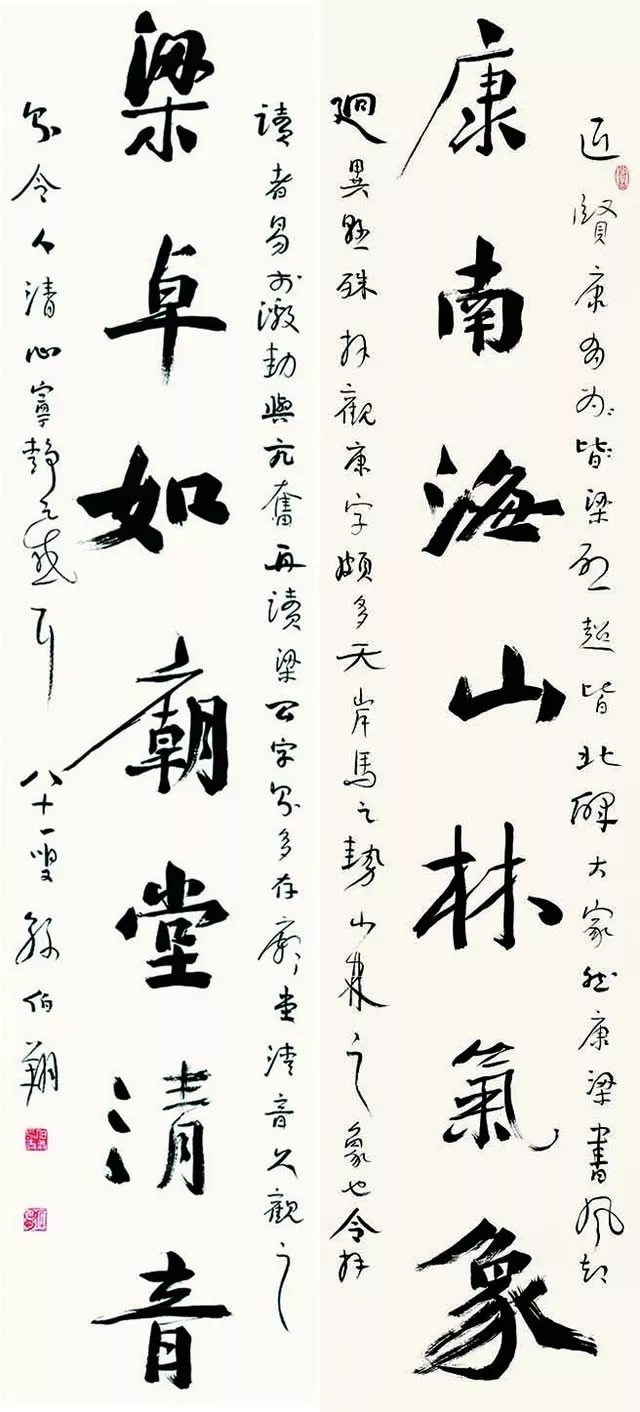 近賢康有为皆梁啟超皆北碑大家然康梁書風却
康南海山林氣象
迥異懸殊拜觀康字頗多天岸馬之勢山林之象也令拜
讀者易於激動與亢奮再讀梁公字多存廟堂清音久觀之
梁卓如廟堂清音
令人清心寧静之感耳
八十一叟孫伯翔